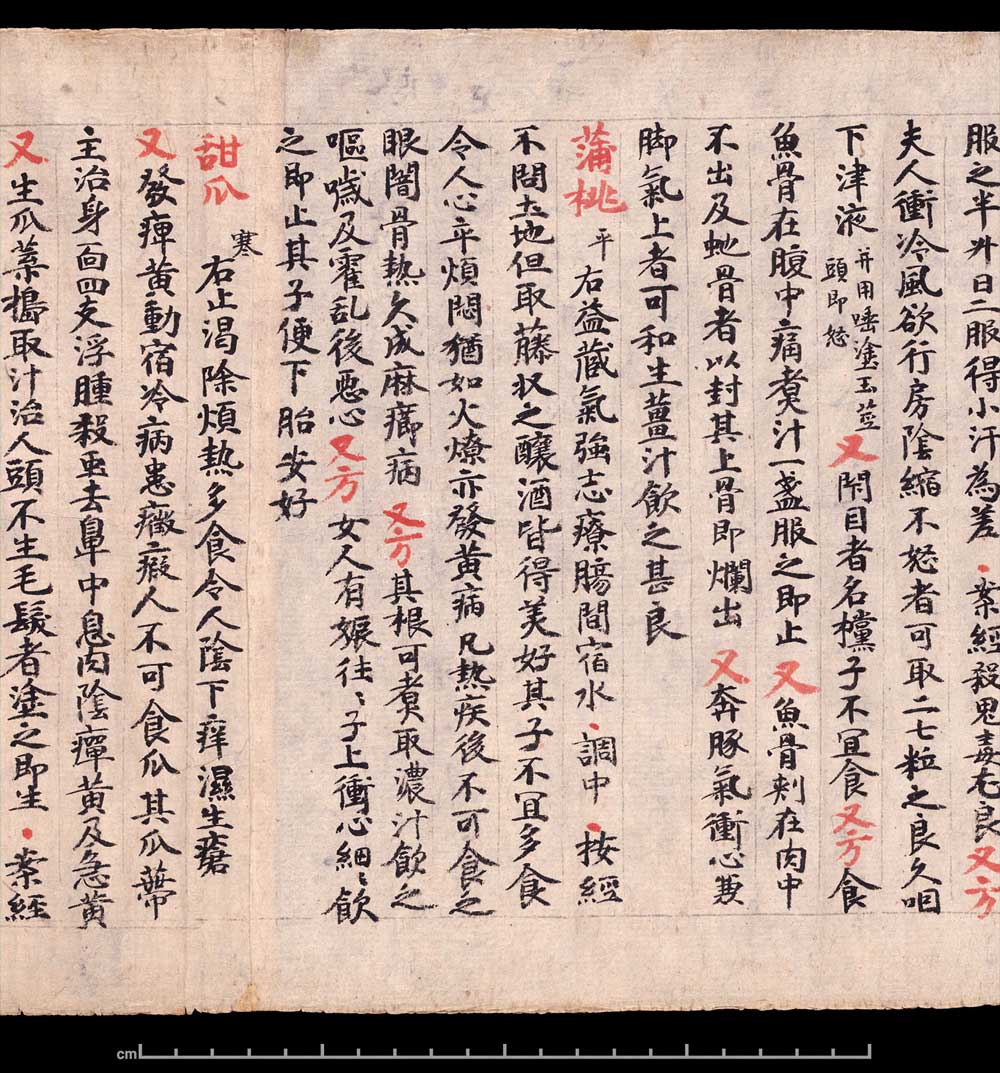 服之半升日二服得小汗為差・案經殺鬼毒尤良又方
夫人衝冷風欲行房陰縮不怒者可取二七粒之良久咽
下津液并用唾塗玉莖頭即怒又閇目者名櫰子不冝食又方食
魚骨在腹中痛煑汁一盞服之即止又魚骨刾在肉中
不出及虵骨者以封其上骨即爛出又奔豚氣衝心兼
脚氣上者可和生薑汁飲之甚良
蒲桃平右益藏氣強志療腸間宿水・調中・按經
不問土地但取藤収之釀酒皆得美好其子不冝多食
令人心卒煩悶猶如火燎亦發黃病凡熱疾後不可食之
眼闇骨熱久成麻癤病又方其根可煑取濃汁飲之
嘔噦及霍乱後惡心又方女人有娠往〻子上衝心細〻飲
之即止其子便下胎安好
甜瓜寒右止渴除煩熱多食令人陰下痒濕生瘡
又發痺黃動宿冷病患癥瘕人不可食瓜其瓜蔕
主治身面四支浮腫殺蟲去鼻中息肉陰癉黃及急黃
又生瓜葉搗取汁治人頭不生毛髮者塗之即生・案經